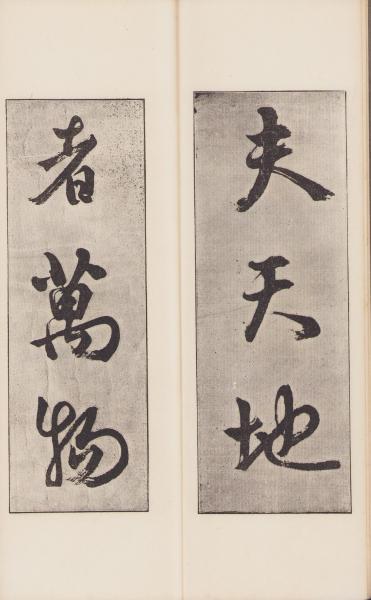 夫天地
者萬物